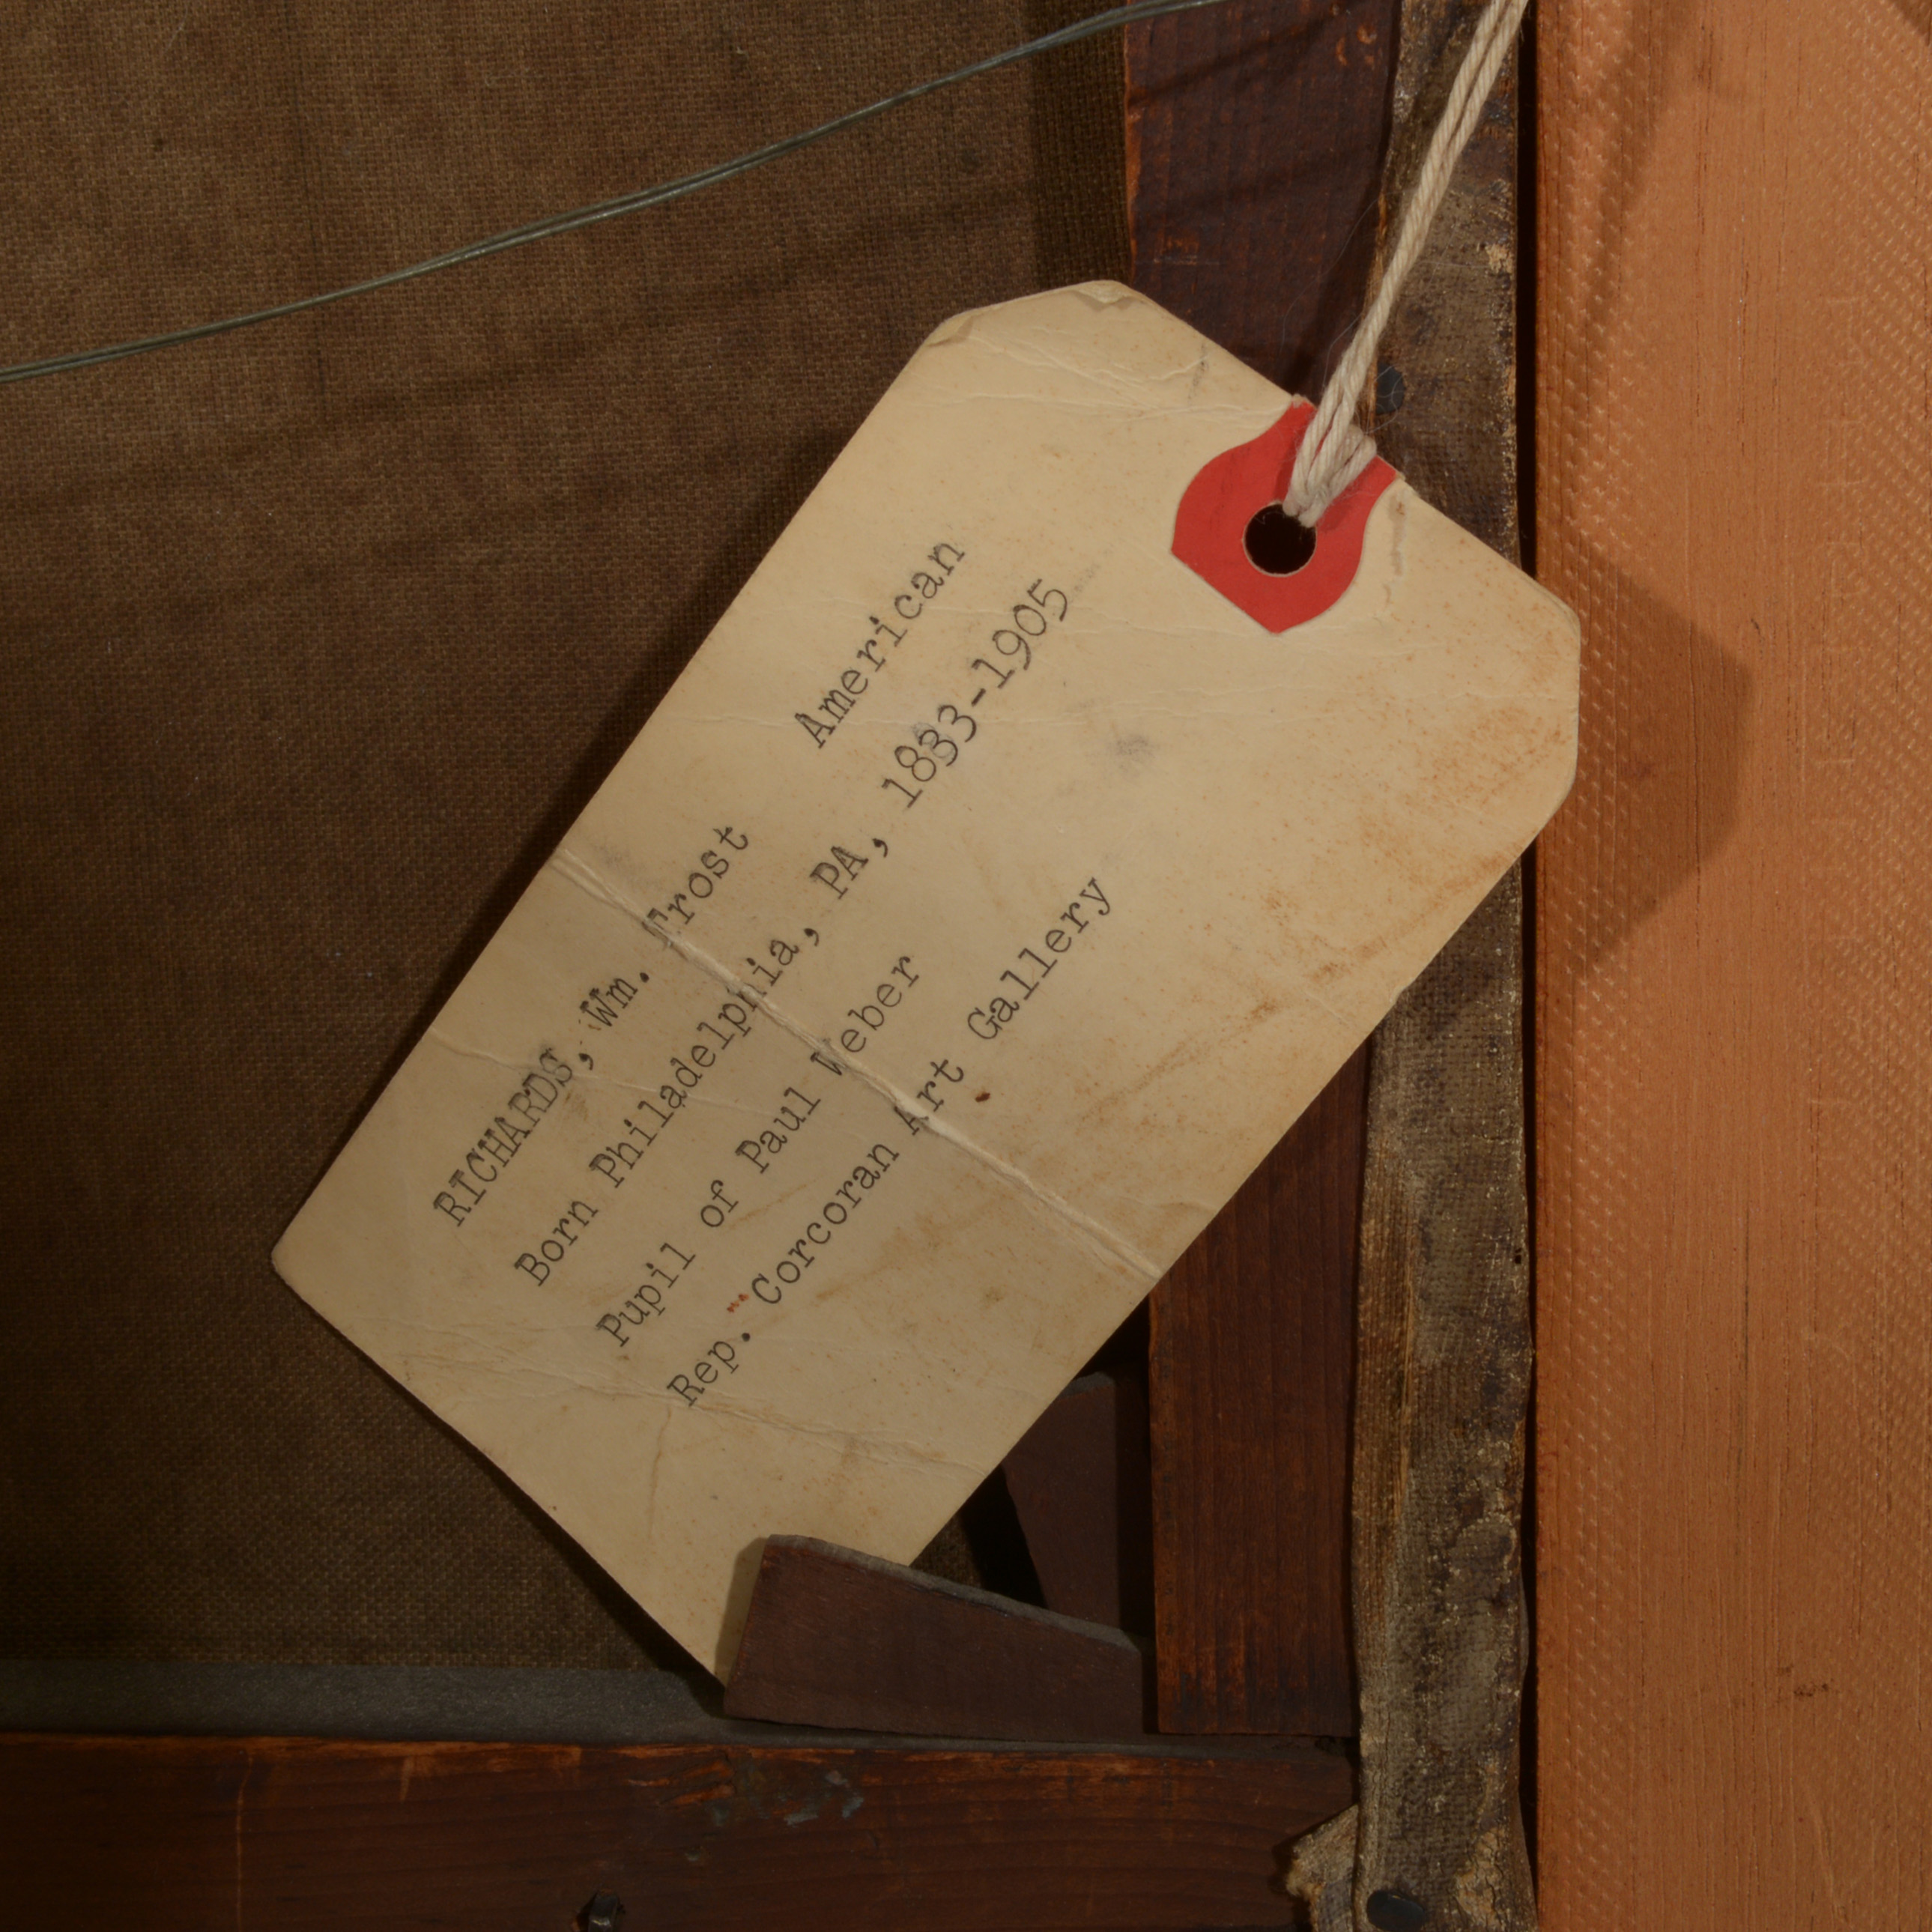 RICHARDS, Wm. Trost American
Born Philadelphia, PA, 1833-1905
Pupil of Paul Weber
Rep. Corcoran Art Gallery